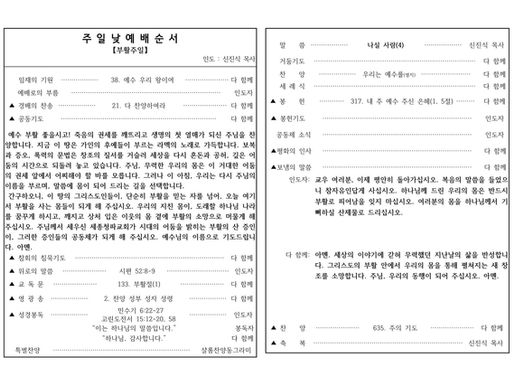 주일낮예배순서
【부활주일】
인도 : 신진식 목사
임재의 기원 38. 예수 우리 왕이여 다 함께
예배로의 부름 인도자
▲ 경배의 찬송 21. 다 찬양하여라 다 함께
▲ 공동기도 다 함께
예수 부활 좋을시고! 죽음의 권세를 깨뜨리고 생명의 첫 열매가 되신 주님을 찬
양합니다. 지금 이 땅은 가인의 후예들이 부르는 라멕의 노래로 가득합니다. 보복
과 증오, 폭력의 문법은 창조의 질서를 거슬러 세상을 다시 혼돈과 공허, 깊은 어
둠의 시간으로 되돌려 놓고 있습니다. 주님, 무력한 우리의 몸은 이 거대한 어둠
의 권세 앞에서 어찌해야 할 바를 모릅니다. 그러나 이 아침, 우리는 다시 주님의
이름을 부르며, 말씀에 몸이 되어 드리는 길을 선택합니다.
간구하오니, 이 땅의 그리스도인들이, 단순히 부활을 믿는 자를 넘어, 오늘 여기
서 부활을 사는 몸들이 되게 해 주십시오. 우리의 지친 몸이, 도래할 하나님 나라
를 꿈꾸게 하시고, 깨지고 상처 입은 이웃의 몸 곁에서 부활의 소망으로 머물게 해
주십시오. 주님께서 세우신 세종청파교회가 시대의 어둠을 밝히는 부활의 산 증인
이, 그러한 증인들의 공동체가 되게 해 주십시오. 예수님의 이름으로 기도드립니
다. 아멘.
▲ 참회의 침묵기도 다 함께
▲ 위로의 말씀 시편 52:8-9 인도자
▲ 교 독 문 133. 부활절(1) 다 함께
▲ 영 광 송 2. 찬양 성부 성자 성령 다 함께
▲ 성경봉독 민수기 6:22-27
고린도전서 15:12-20, 58 인도자
"이는 하나님의 말씀입니다." 봉독자
"하나님, 감사합니다." 다 함께
특별찬양 샬롬찬양동그라미
말 씀 나실 사람(4) 신진식 목사
거둠기도 다 함께
찬 양 우리는 예수를 다 함께
세 례 식 다 함께
▲ 봉 헌 317. 내 주 예수 주신 은혜(1, 5절) 다 함께
▲ 봉헌기도 인도자
공동체 소식 인도자
▲평화의 인사 다 함께
▲보냄의 말씀 다 함께
인도자: 교우 여러분, 이제 평안히 돌아가십시오. 복음의 말씀을 들었으
니 참자유인답게 사십시오. 하나님께 드린 우리의 몸은 반드시
부활로 피어남을 잊지 마십시오. 여러분의 몸을 하나님께서 기
뻐하실 산제물로 드리십시오.
다 함께: 아멘. 세상의 이야기에 갇혀 우왕했던 지난날의 삶을 반성합니
다. 그리스도의 부활 안에서 우리의 몸을 통해 펼쳐지는 새 창
조를 소망합니다. 주님, 우리의 동행이 되어 주십시오. 아멘.
▲ 찬 양 635. 주의 기도 다 함께
▲ 축 복 신진식 목사